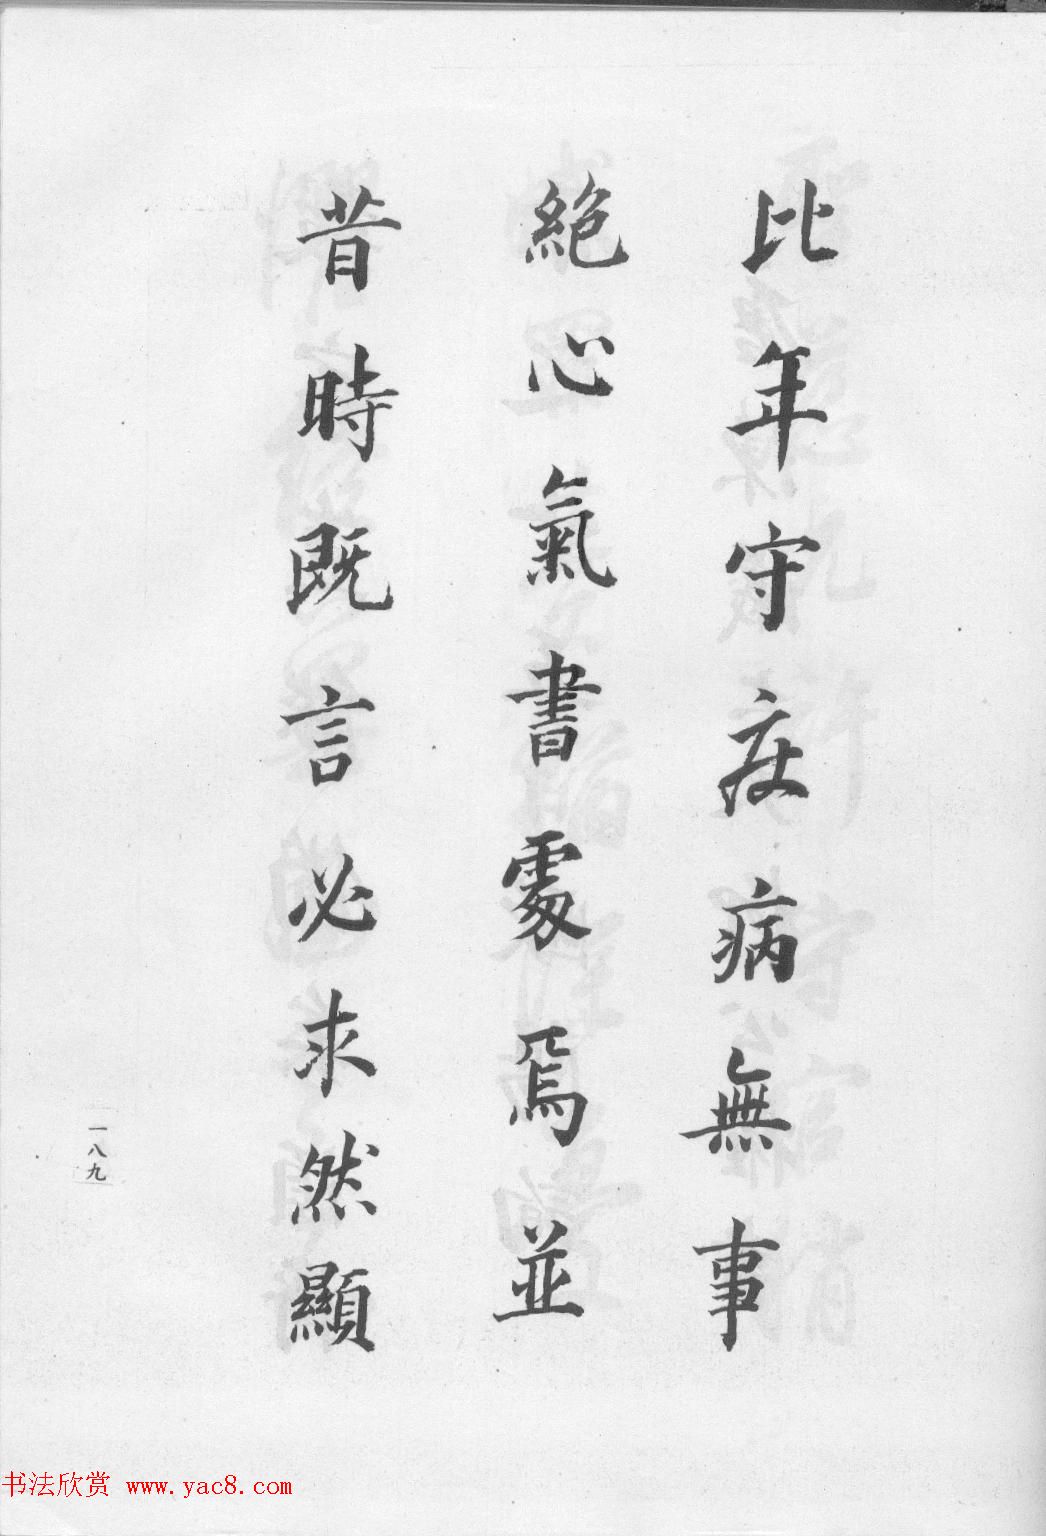 比年守疾病無事
絕心氣書處焉並
昔時既言必求然顯
一八九
书法欣赏 www.yac8.com